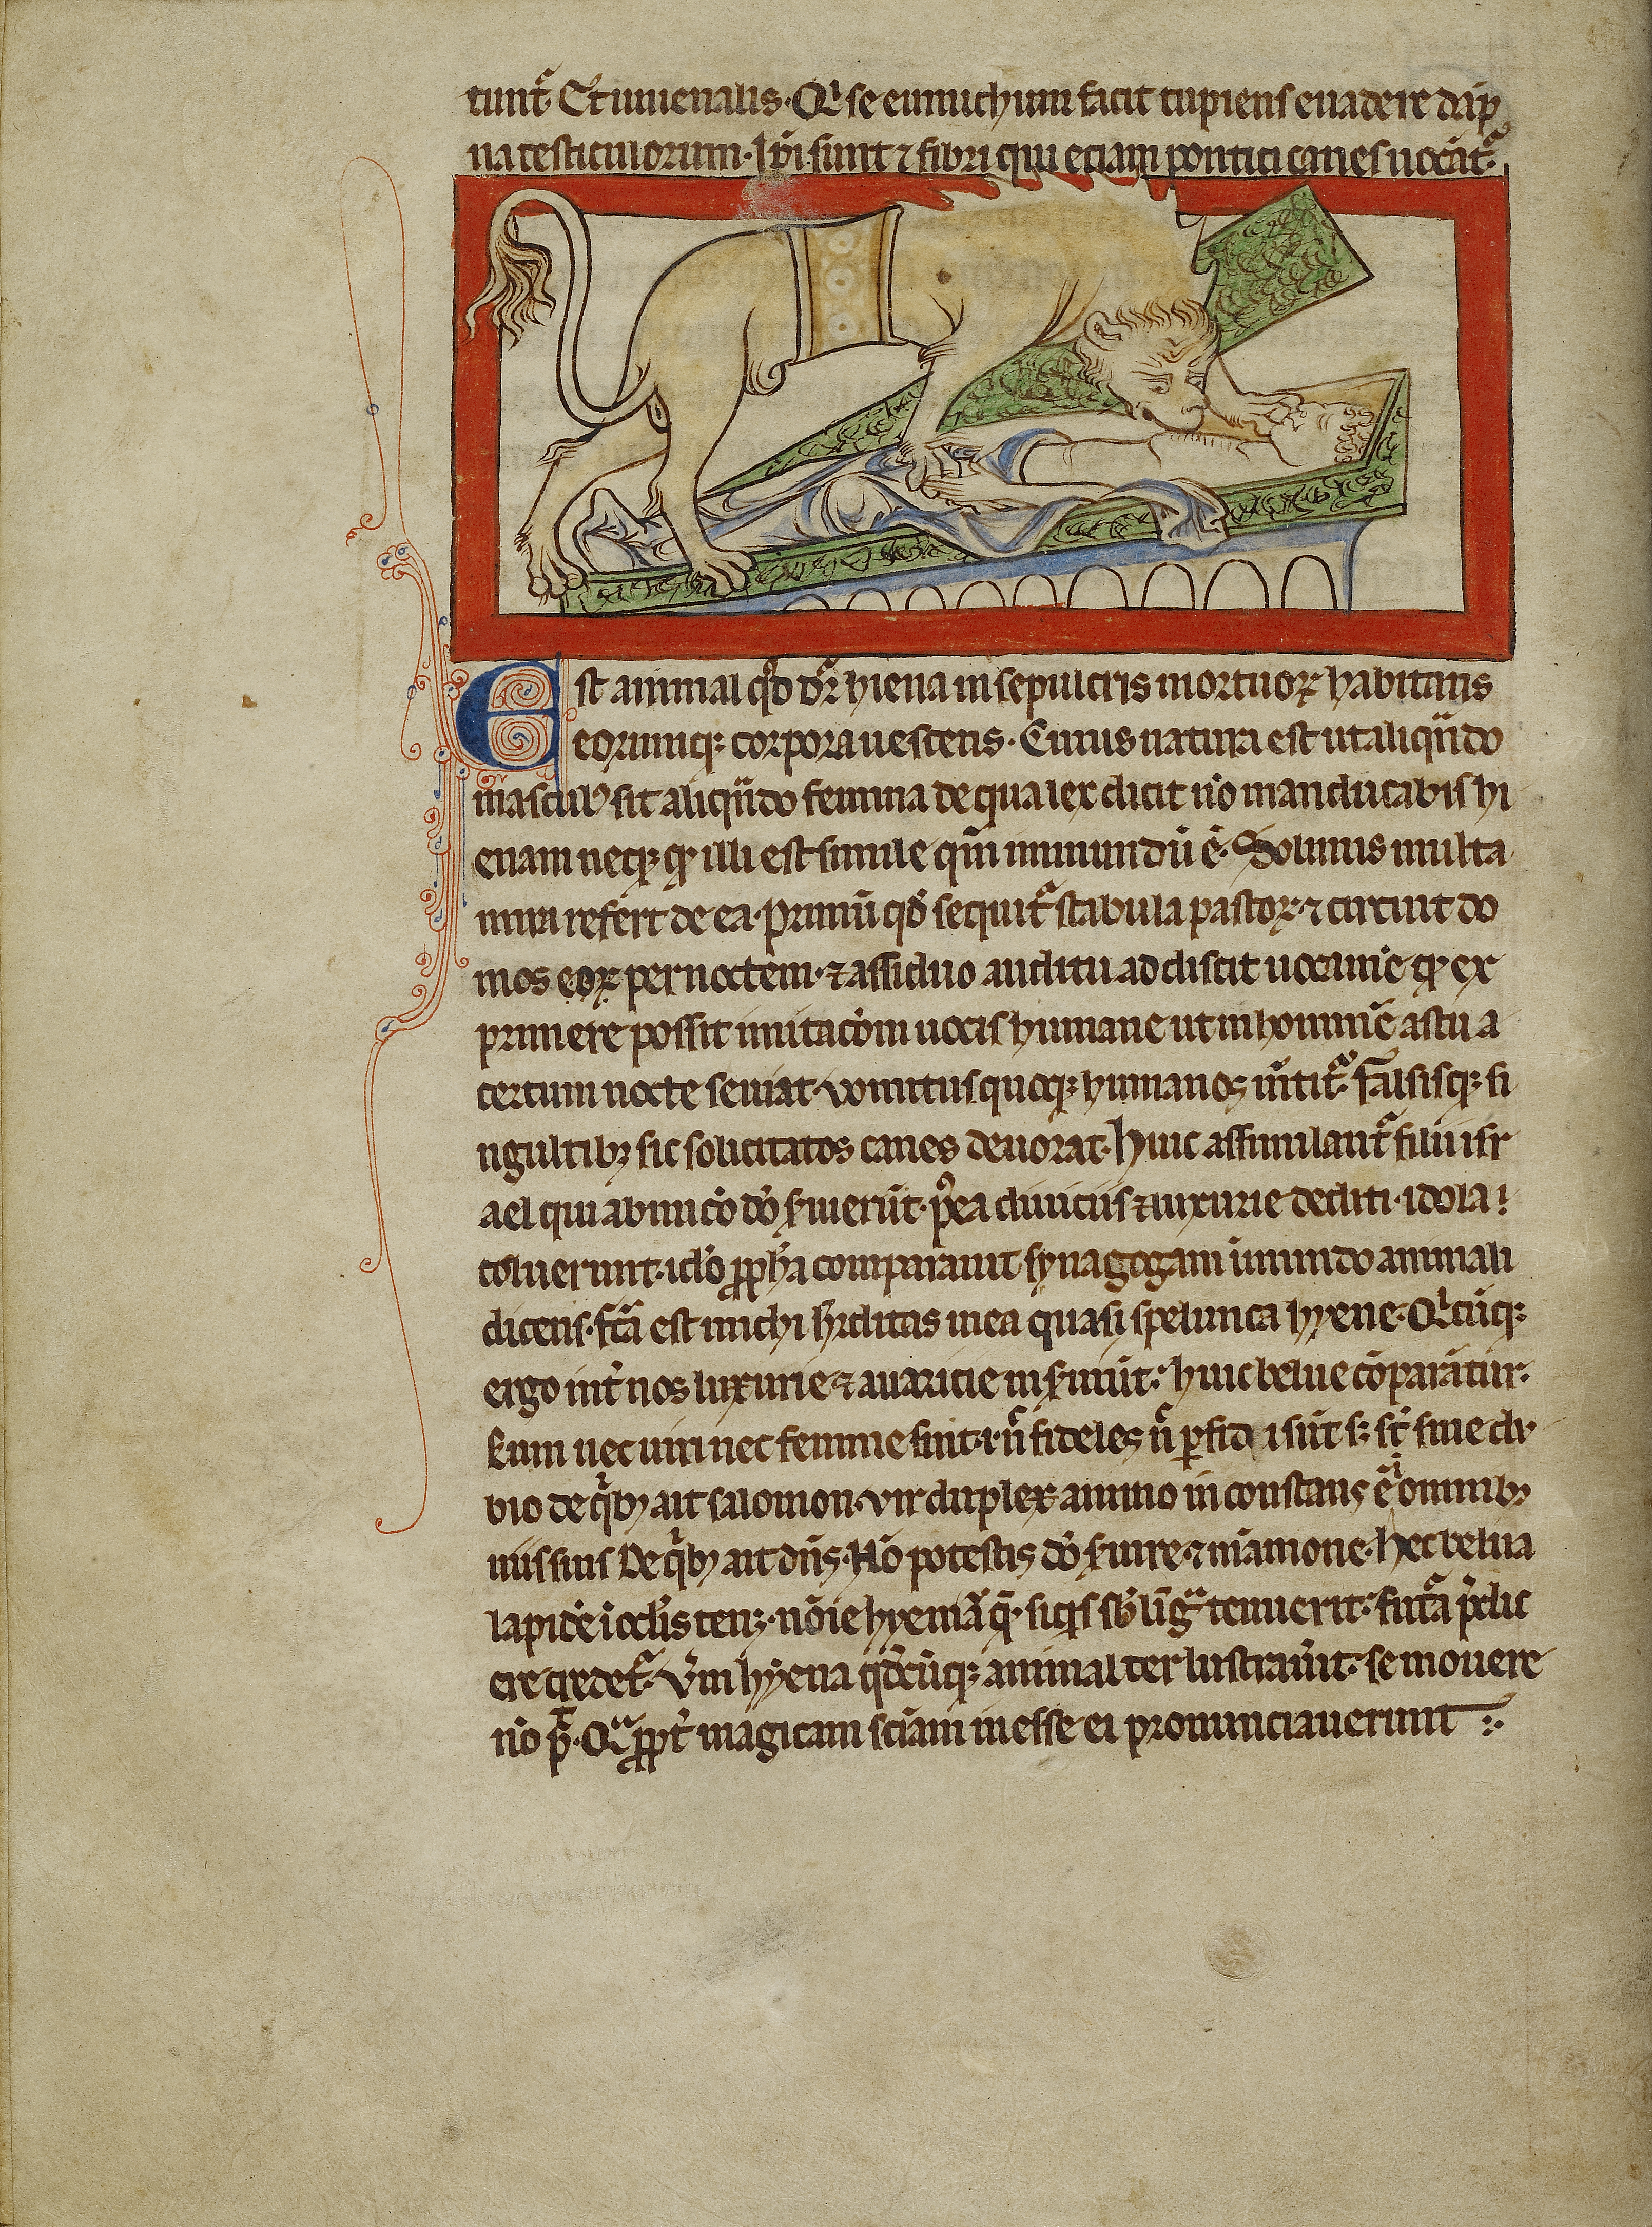 tunt᷑. Et iuuenalis. Qͥ se eunuchum facit cupiens euadere dāp
na testiculorum. Ip̄i sunt ⁊ fibri qui eciam pontici canes uocāt᷑.
Est animal qd̓ dr̄ hiena in sepulcris mortuoꝝ habitans
eorumqꝫ corpora uescens. Cuius natura est ut aliqn̄do
masculꝰ sit aliqn̄do femina de qua lex dicit nō manducabis hi
enam neqꝫ illi est simile qm̄ inmundū ē. Solinus multa
mira refert de ea. Primū qd̓ sequit᷑ stabula pastoꝝ ⁊ circuit do
mos eoꝝ per noctem. ⁊ assiduo auditu addiscit uocamē ex
primere possit imitacōm uocis humane ut in hominē astu a
certum nocte seuiat. vomitus quoqꝫ humanos m̄tit᷑. Falsisqꝫ si
ngultibꝫ sic solicitatos canes deuorat. Huic assimilant᷑ filii isr
ael qui ab inicō dō s̓uierūt. p̓ea diuiciis ⁊ luxurie dediti. idola
coluerunt. idō ꝓph̄a comparauit synagogam inmundo animali
dicens. fc̄a est michi h̓editas mea quasi spelunca hyene. Qͥcūqꝫ
ergo int̓ nos luxurie ⁊ auaricie ins̓uiūt. huic belue cōparātur.
Cum nec uiri nec femine sint .i. n̄ fideles n̄ ꝑfidi sūt sꝫ st̄ sine du
bio de qͥbꝫ ait salomon. vir duplex animo inconstans ē omnibꝫ
uiis suis De qͥbꝫ ait dn̄s. Nō potestis dō s̓uire ⁊ māmone. Hec belua
lapidē ī oc̄lis tenꝫ. nōie hyeniā qͥ. siqͥs sb̄ lig̃ tenuerit. fut᷑a p̄dic
ere credet᷑. Vm̄ hyena qd̓cūqꝫ animal ter lustrau̓it. se mouere
nō p̄t. Qͣ ꝓpt̓ magicam sciām inesse ei pronunciauerunt